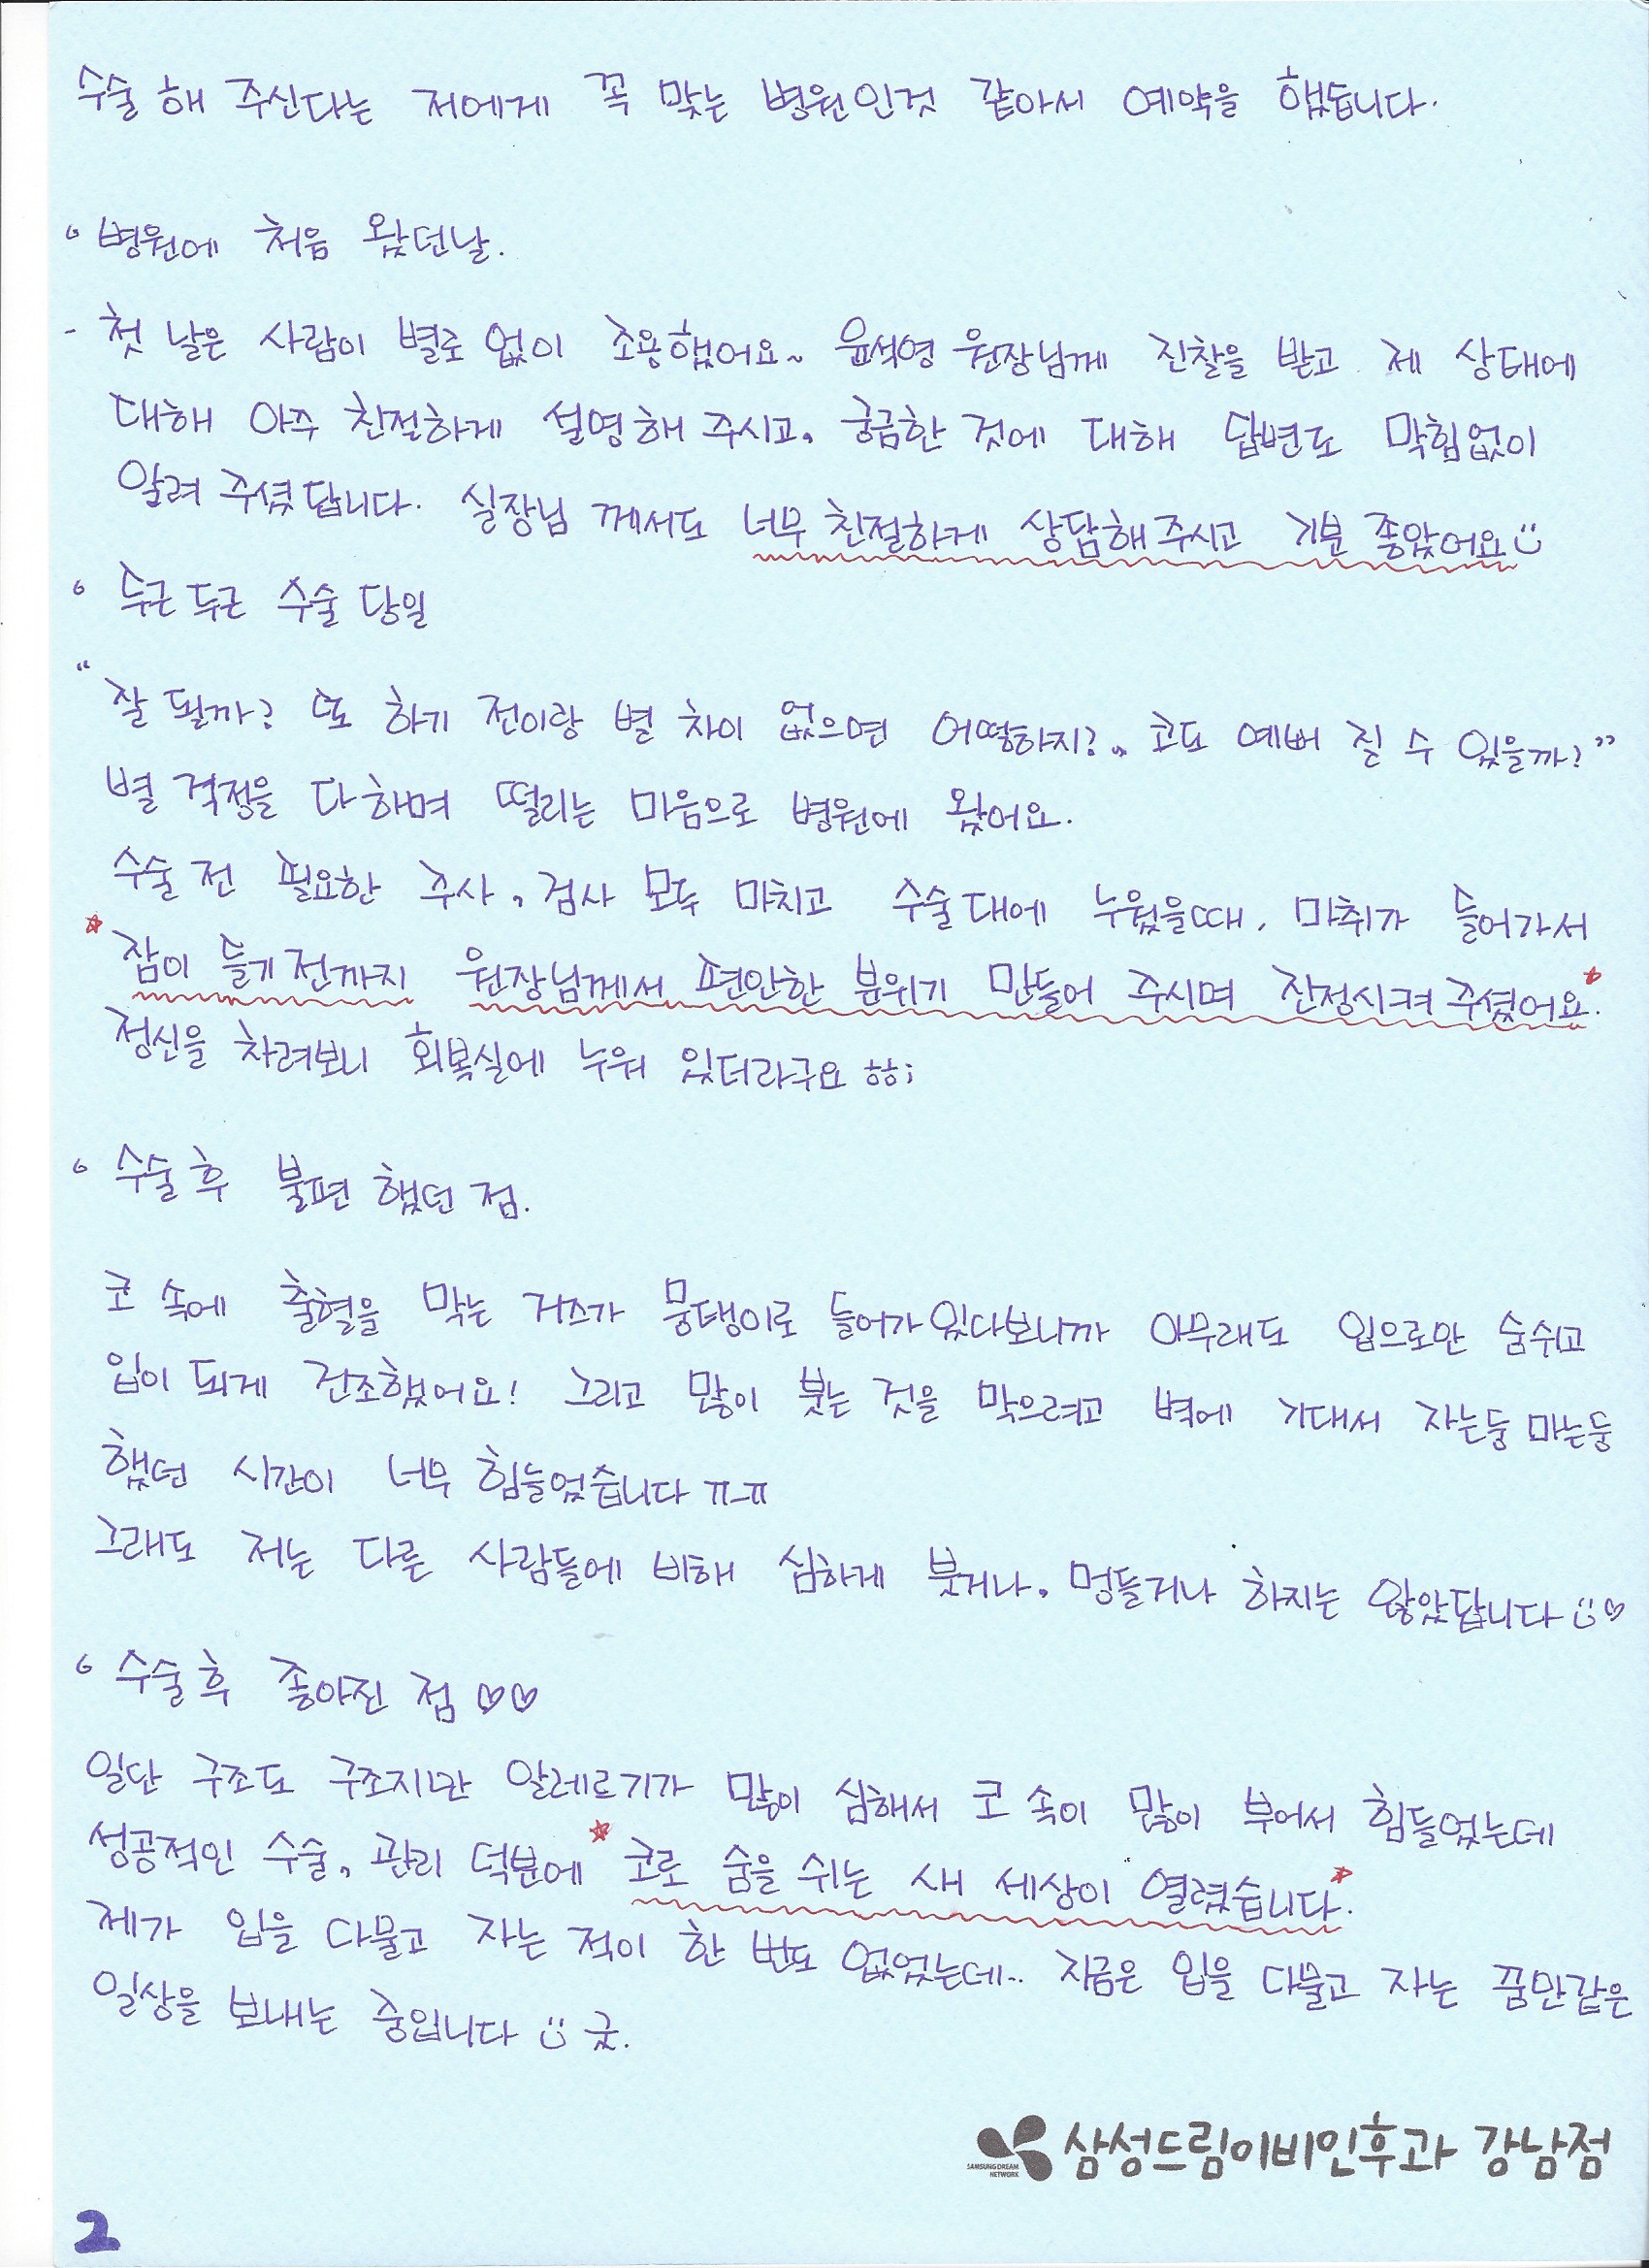 수술 해 주신다는 저에게 꼭 맞는 병원인것 같아서 예약을 했습니다.
병원에 처음 왔던날.
- 첫 날은 사람이 별로 없이 조용했어요~ 윤석영 원장님께 진찰을 받고 제 상태에
대해 아주 친절하게 설명해 주시고, 궁금한 것에 대해 답변도 막힘없이
알려 주셨답니다. 실장님 께서도 너무 친절하게 상담해주시고 기분 좋았어요
두근두근 수술 당일
"잘 될까? 또 하기 전이랑 별 차이 없으면 어떻하지?.. 코도 예뻐 질 수 있을까?"
별 걱정을 다하며 떨리는 마음으로 병원에 왔어요.
수술 전 필요한 주사, 검사 모두 마치고 수술대에 누웠을때, 마취가 들어가서
잠이 들기 전까지 원장님께서 편안한 분위기 만들어 주시며 진정시켜 주셨어요.
정신을 차려보니 회복실에 누워 있더라구요 ㅎㅎ;
수술 후 불편 했던 점.
코 속에 출혈을 막는 거즈가 뭉탱이로 들어가있다보니까 아무래도 입으로만 숨쉬고
입이 되게 건조했어요! 그리고 많이 붓는 것을 막으려고 벽에 기대서 자는둥 마는둥
했던 시간이 너무 힘들었습니다 ㅠ-ㅠ
그래도 저는 다른 사람들에 비해 심하게 붓거나, 멍들거나 하지는 않았답니다 ♡
수술 후 좋아진 점 ♡♡
일단 구조도 구조지만 알레르기가 많이 심해서 코 속이 많이 부어서 힘들었는데
성공적인 수술, 관리 덕분에 코로 숨을 쉬는 새 세상이 열렸습니다.
제가 입을 다물고 자는 적이 한 번도 없었는데.. 지금은 입을 다물고 자는 꿈만같은
일상을 보내는 중입니다 굿.
SAMSUNG DREAM NETWORK 삼성드림이비인후과 강남점
2